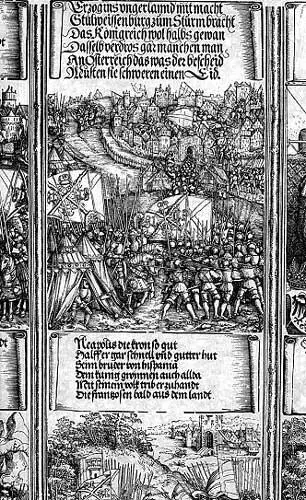 Er zog ins ungerlannd mit macht
Stulweissenburg zum Sturm bracht
Das Konigreich wol halbs gewan
Dasselb verdros gar manchen man
An Osterreich das was der bescheid
Musten sie schweren einen Eid.
Neapolis die kron so gut
Halff er gar schnell und gutter hut
Seim bruder von hispania
Dem kunig gwunnen auch allda
Mit seinem volk trib er zuhandt
Die franzosen bald aus dem landt